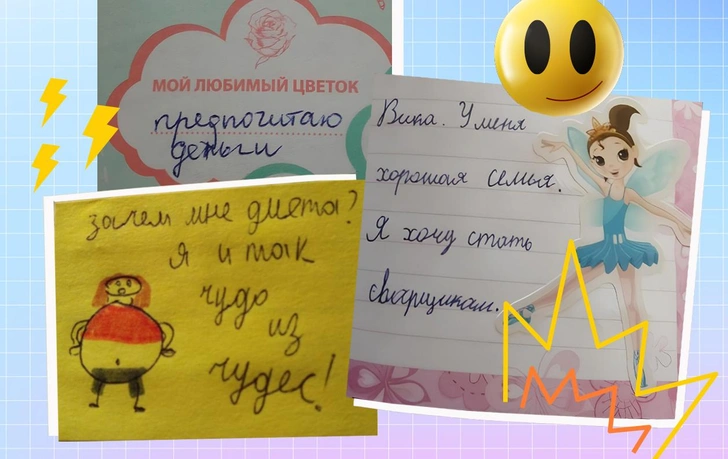 МОЙ ЛЮБИМЫЙ ЦВЕТОК
предпочитаю
деньги
Вика. У меня
хорошая семья.
Я хочу стать
сварщикам.
зачем мне диета?
я и так
чудо
из
чудес!